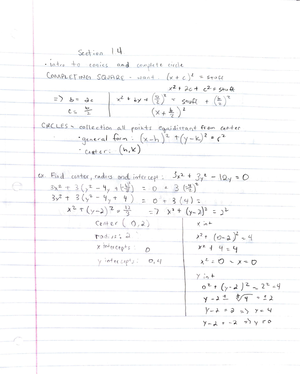 Section 1.4
• intro to conics and complete circle
COMPLETING SQUARE - want (x + c)² = stuff
x² + 2c + c² = stuff
=> b = 2c | x² + bx + (b/2)² = stuff + (b/2)²
c = b/2 | (x + b/2)²
CIRCLES = collection all points equidistant from center
• general form: (x-h)² + (y-k)² = r²
• center: (h, k)
ex Find center, radius and intercept: 3x² + 3y² - 12y = 0
3x² + 3(y² - 4y + (-4/2)²) = 0 + 3(-4/2)²
3x² + 3(y² - 4y + 4) = 0 + 3(4) =
x² + (y-2)² = 12/3 => x² + (y-2)² = 2²
center (0, 2)
radius: 2
x intercepts: 0
y intercepts: 0, 4
x int
x² + (0-2)² = 4
x² + 4 = 4
x² = 0 → x = 0
y int
0² + (y-2)² = 2² = 4
y - 2 = √4 = ±2
y - 2 = 2 => y = 4
y - 2 = -2 => y = 0